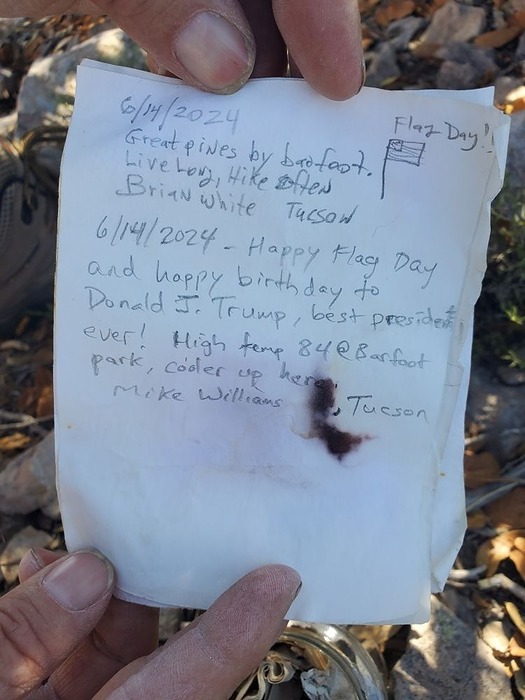 6/14/2024
Flag Day!!
Great pines by badfoot.
Live Long, Hike Often
Brian White Tucson
6/14/2024 - Happy Flag Day
and happy birthday to
Donald J. Trump, best president
ever! High temp 84 @ Barfoot
park, cooler up here.
Mike Williams, Tucson